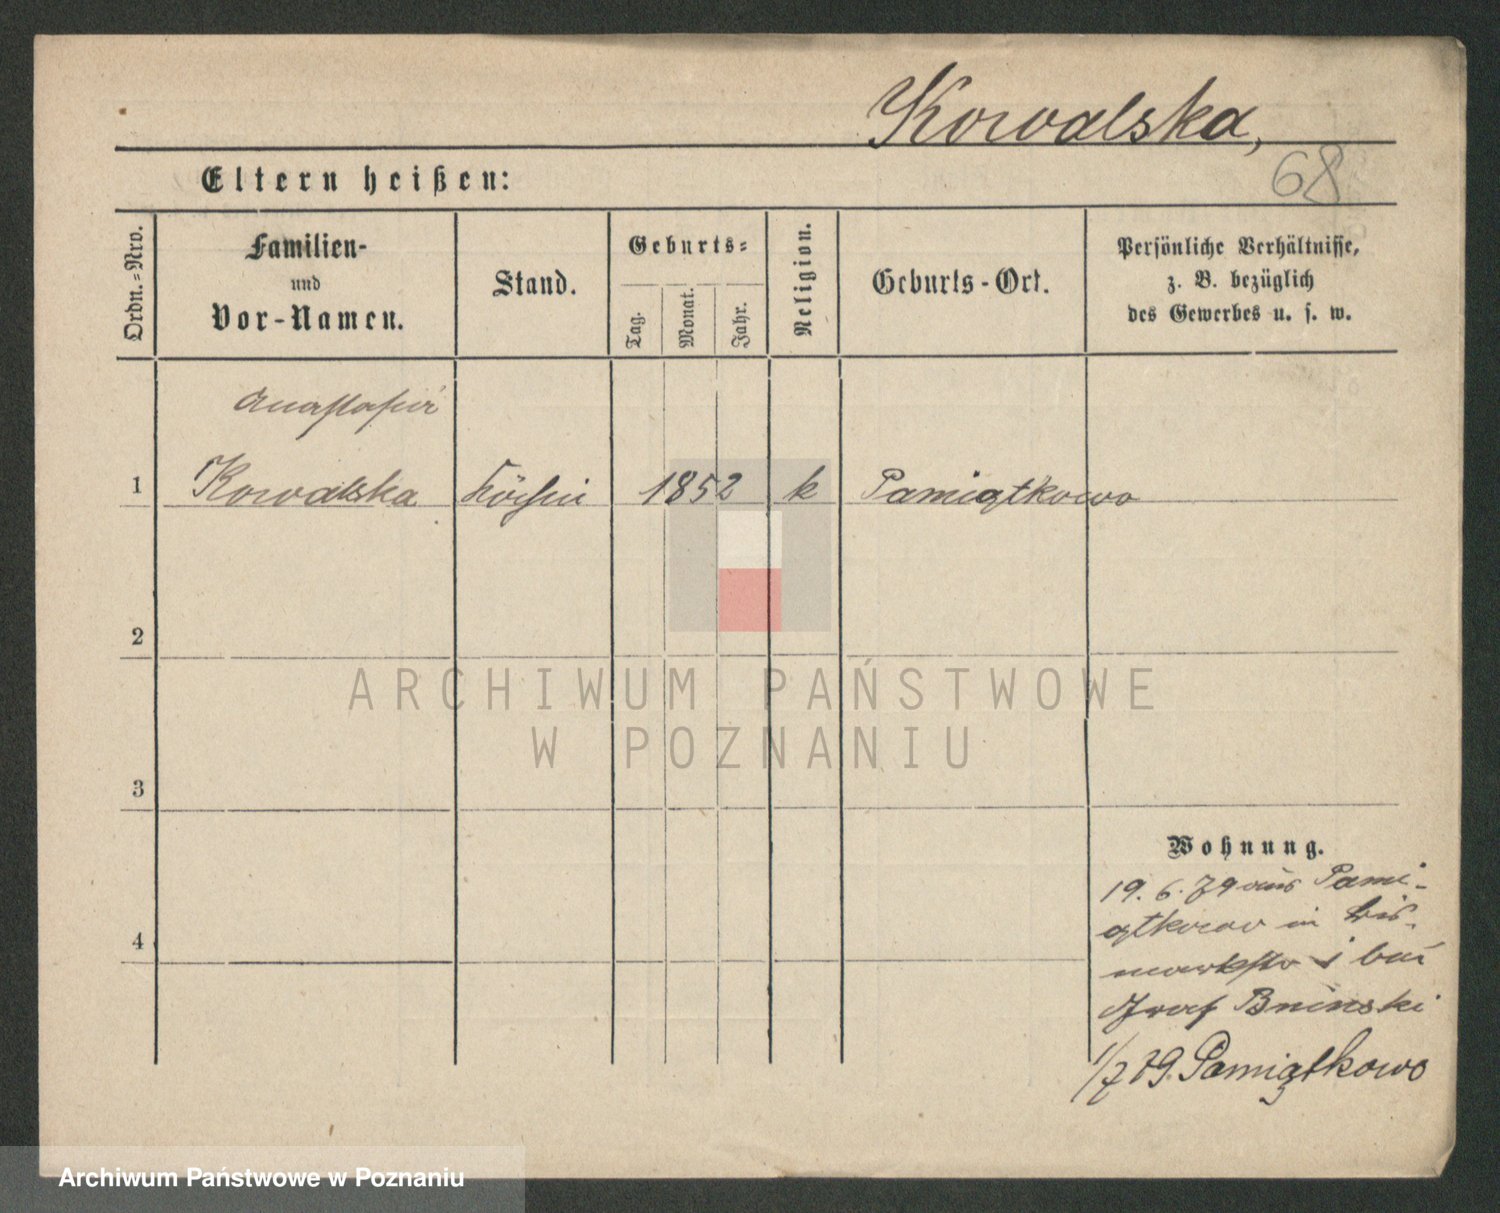 Kowalska,
68
Eltern heißen:
Ordn.=Nro.
Familien-
und
Vor-Namen.
Stand.
Geburts=
Tag.
Monat.
Jahr.
Religion.
Geburts-Ort.
Persönliche Verhältnisse,
z. B. bezüglich
des Gewerbes u. s. w.
Anastasia
1 Kowalska Köchin 1852 k Pamiątkowo
2
ARCHIWUM PAŃSTWOWE
W POZNANIU
3
Wohnung.
19. 6. 79 aus Pami-
ątkowo in Bis-
markstr 1 bei
Graf Bninski
4
1/7 79. Pamiątkowo
Archiwum Państwowe w Poznaniu